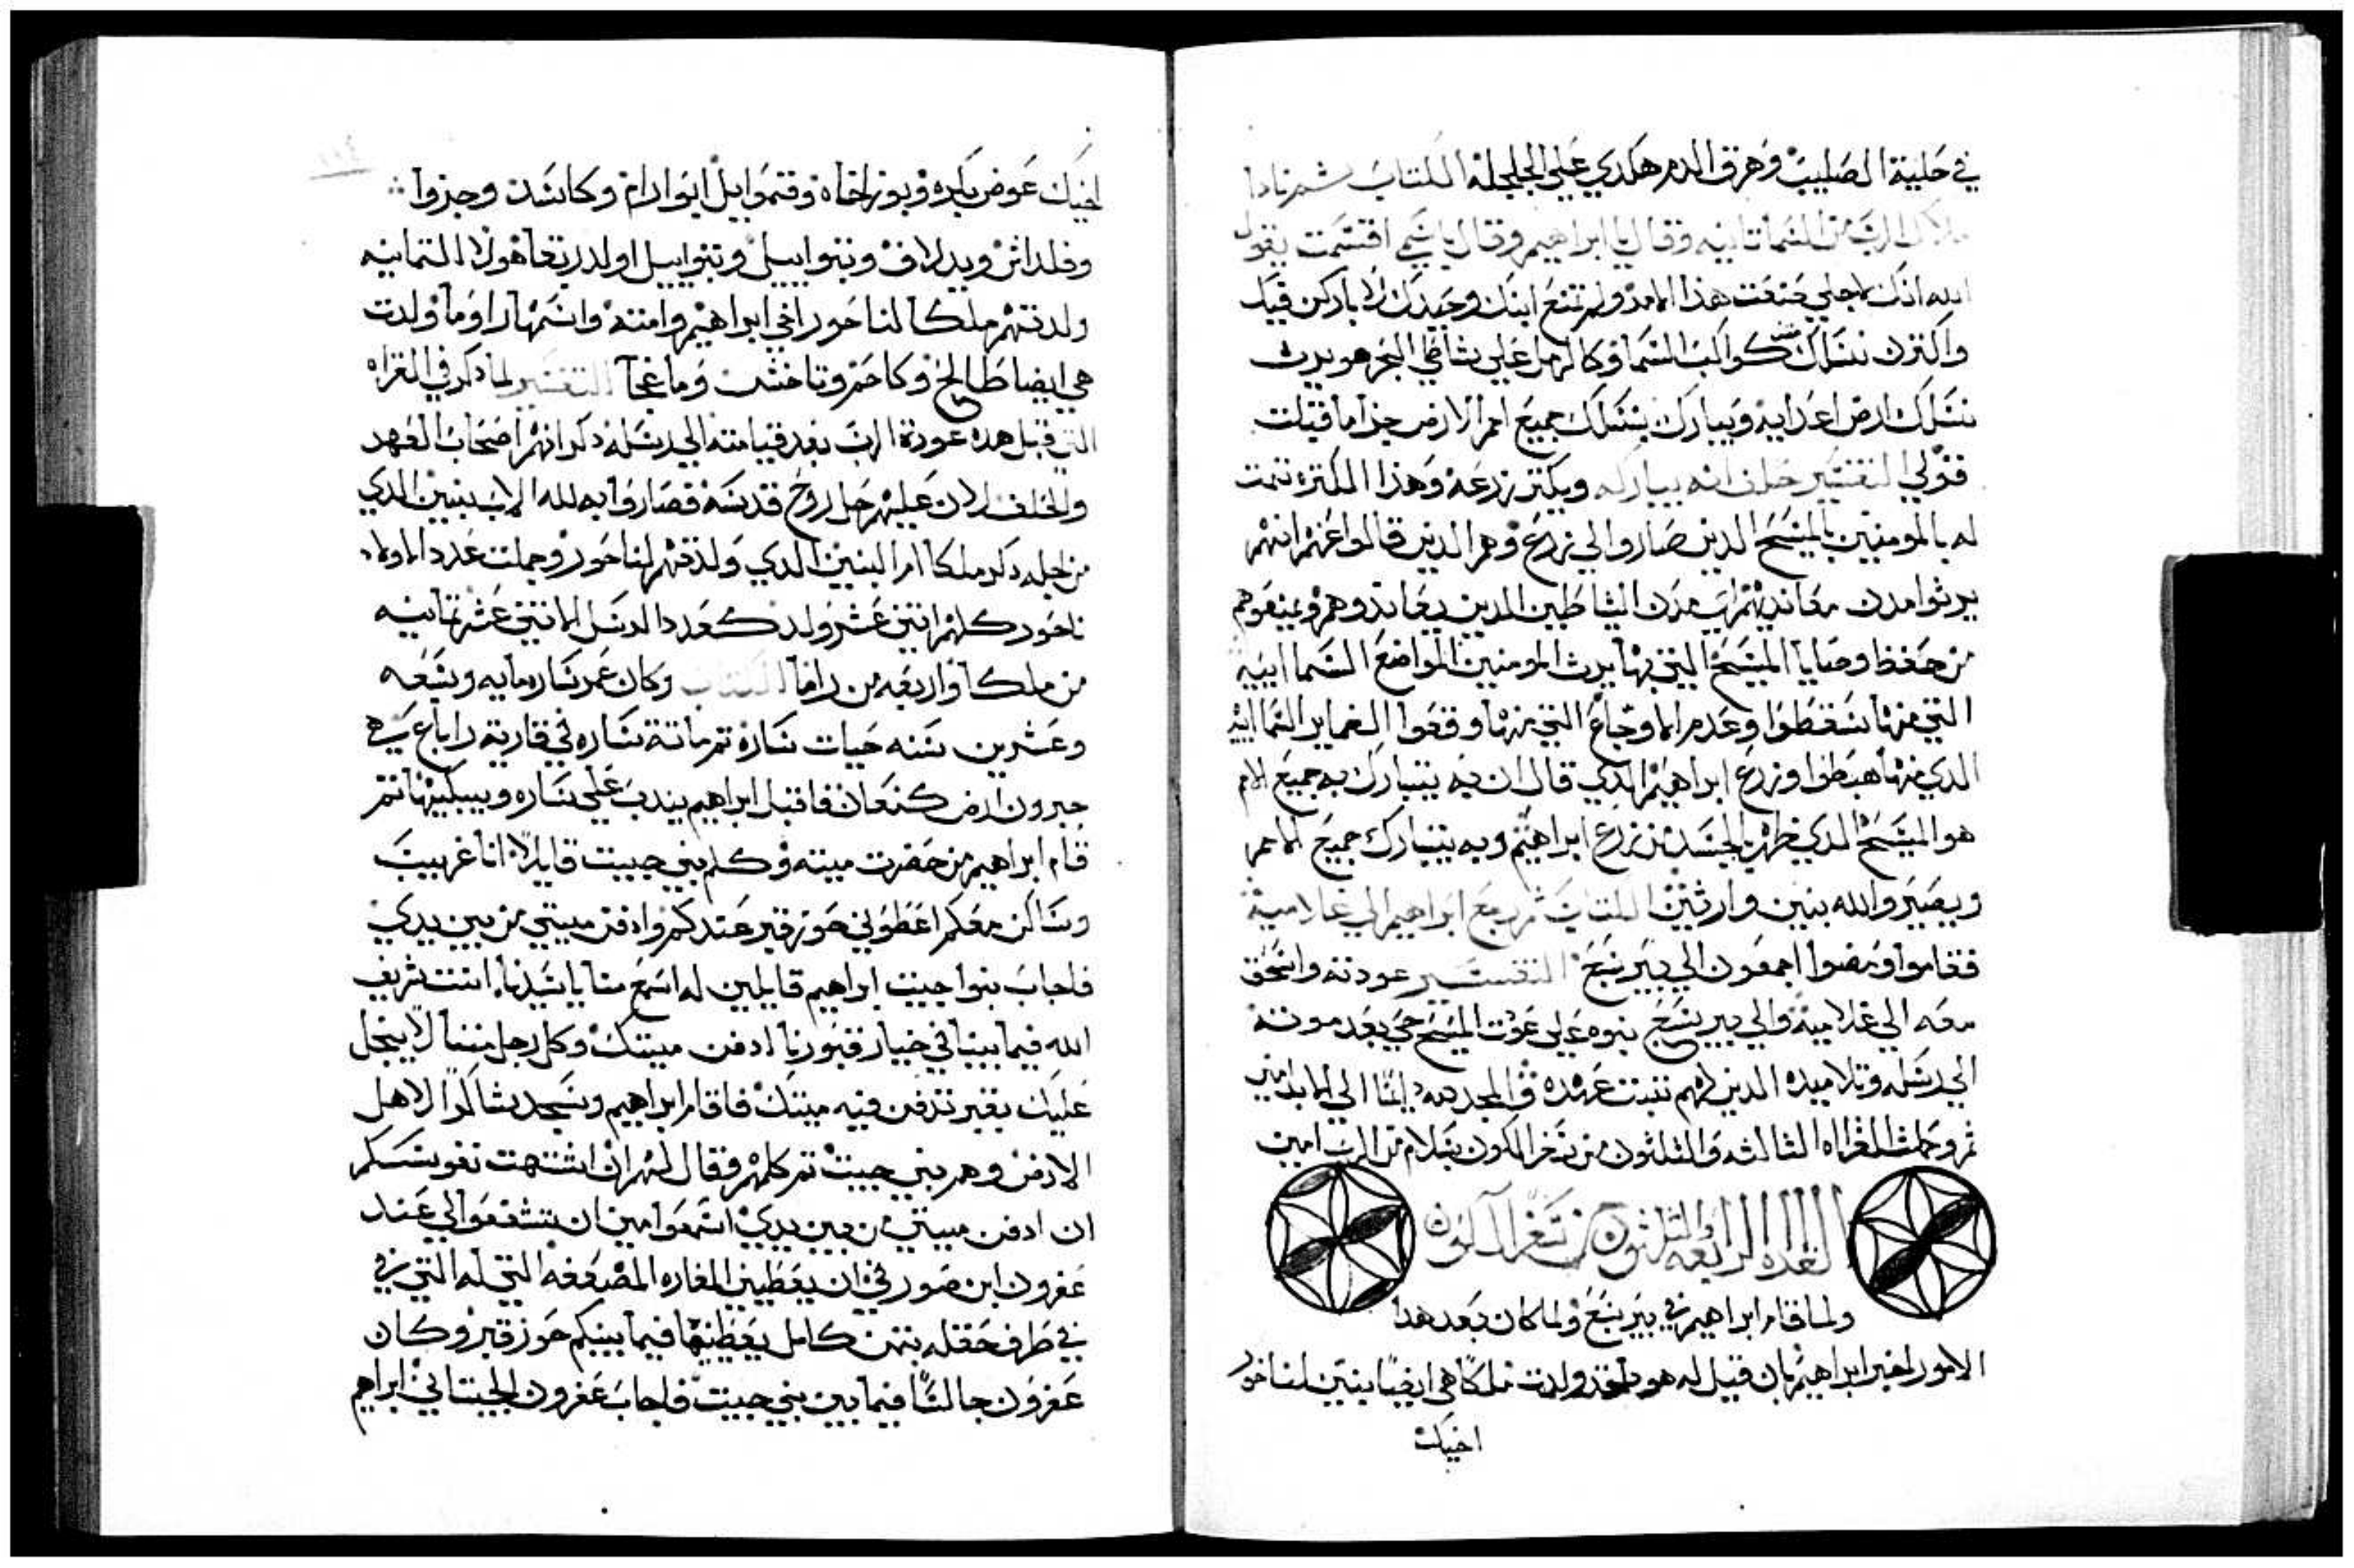 في حلية الصليب وهرق الدم هكدي علي الجلجلة الكتاب ثم نادا
ملاك الرب من السما تانيه وقال يا ابراهيم وقال باسمي اقسمت يقول
الله انك لاجلي صنعت هذا الامر ولم تمنع ابنك وحيدك لاباركن فيك
واكترن نسلك مثل كواكب السما وكالرمل علي شاطي البحر هو يرث
نسلك ارض اعدايه ويبارك بنسلك جميع امم الارض جزا ما قبلت
قولي التفسير حلف انه يباركه ويكتر زرعه وهذا الكتره تمت
له بالمومنين بالمسيح الدين صاروا الي زرع وهم الدين قالوا عنهم انهم
يرثوا مدن معانديهم اي مدن الشياطين الدين يعاندوهم ويمنعوهم
من حفظ وصايا المسيح التي بها يرث المومنين المواضع السماييه
التي منها سقطوا وعدم الاوجاع التي منها وقعوا الضماير السماييه
الدي منها هبطوا وزرع ابراهيم الدي قال ان به يتبارك به جميع الامم
هو المسيح الدي ظهر بالجسد من زرع ابراهيم وبه يتبارك جميع الامم
ويصيروا لله بنين وارثين الكتاب ثم رجع ابراهيم الي غلاميه
فقاموا ومضوا اجمعون الي بير سبع التفسير عودته واسحق
معه الي غلاميه والي بير سبع ينوه علي عوت المسيح حي بعد موته
الي رسله وتلاميده الدين لهم تتبت عهده والمجد لله دايما الي الابد امين
تم وكملت القراه الثالثه والثلثون من سفر الكون بسلام من الرب امين
القراه الرابعه والثلثون من سفر التكون
ولما قام ابراهيم في بير سبع ولما كان بعد هدا
الامور اخبر ابراهيم بان قيل له هودا قد ولدت ملكا هي ايضا بنين لناخور
اخيك
اخيك عوض بكره وبوز اخاه وقموايل ابو ارام وكاسد وجزوا
وفلداش ويدلاف وبتواييل وبتواييل اولد ربقا هولا التمانيه
ولدتهم ملكا لناحور اخي ابراهيم وامته واسمها راوما ولدت
هي ايضا طالخ وكاحم وتاخش وماعخا التفسير لما دكر في القراه
التي قبل هده عودة الرب بعد قيامته الي رسله دكر انهم اصحاب العهد
والخلف لان عليهم حل روح قدسه فصاروا به لله الاب بنين الدي
من اجله دكر ملكا ام البنين الدي ولدتهم لناحور وجملت عدد اولاد
ناحور كلهم اتني عشر ولد كعدد الرسل الاتني عشر تمانيه
من ملكا واربعه من راما الكتاب وكان عمر ساره مايه وسبعه
وعشرين سنه حيات ساره تم ماتة ساره في قارية راباع هي
حبرون ارض كنعان فاقبل ابراهيم يندب علي ساره ويبكيها تم
قام ابراهيم من حضرت ميته وكلم بني حيت قايلا انا غريب
وساكن معكم اعطوني حوز قبر عندكم وادفن ميتي من بين يدي
فاجاب بنوا حيت ابراهيم قايلين له اسمع منا يا سيدنا انت شريف
الله فيما بيننا في خيار قبورنا ادفن ميتك وكل رجل مننا لا يبخل
عليك بقبر تدفن فيه ميتك فاقام ابراهيم وسجد شاكرا لاهل
الارض وهم بني حيت تم كلمهم وقال لهم ان اشتهت نفوسكم
ان ادفن ميتي من بين يدي اسمعوا مني ان تتشفعوا لي عند
عفرون ابن صور في ان يعطيني المغاره المضعفه التي له التي هي
في طرف حقله بتمن كامل يعطينها فيما بينكم حوز قبر وكان
عفرون جالسا فيما بين بني حيت فاجاب عفرون الحيتاني ابراهيم